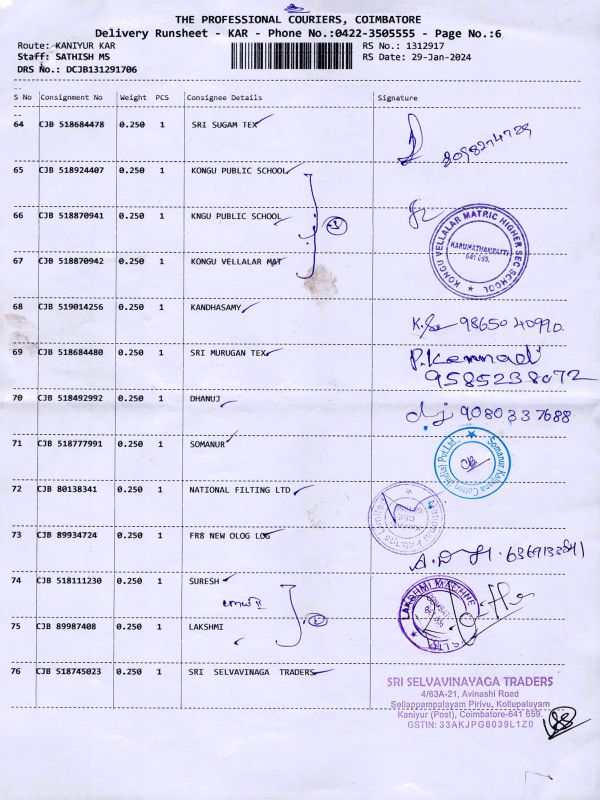 THE PROFESSIONAL COURIERS, COIMBATORE
Delivery Runsheet - KAR - Phone No.:0422-3505555 - Page No.:6
Route: KANIYUR KAR RS No.: 1312917
Staff: SATHISH MS RS Date: 29-Jan-2024
DRS No.: DCJB131291706
S No Consignment No Weight PCS Consignee Details Signature
64 CJB 518684478 0.250 1 SRI SUGAM TEX
65 CJB 518924407 0.250 1 KONGU PUBLIC SCHOOL
66 CJB 518870941 0.250 1 KNGU PUBLIC SCHOOL
KONGU VELLALAR MATRIC HIGHER SEC SCHOOL
KARUMATHAMPATTI
641 659.
67 CJB 518870942 0.250 1 KONGU VELLALAR MAT
68 CJB 519014256 0.250 1 KANDHASAMY
98650 40990
69 CJB 518684480 0.250 1 SRI MURUGAN TEX
9585238072
70 CJB 518492992 0.250 1 DHANUJ
9080337688
71 CJB 518777991 0.250 1 SOMANUR
Somanur Kalpana Cotton (India) Pvt.Ltd.,
72 CJB 80138341 0.250 1 NATIONAL FILTING LTD
73 CJB 89934724 0.250 1 FR8 NEW OLOG LOG
74 CJB 518111230 0.250 1 SURESH
LAKSHMI MACHINE
75 CJB 89987408 0.250 1 LAKSHMI
76 CJB 518745023 0.250 1 SRI SELVAVINAGA TRADERS
SRI SELVAVINAYAGA TRADERS
4/63A-21, Avinashi Road
Sellappampalayam Pirivu, Kollupalayam
Kaniyur (Post), Coimbatore-641 659.
GSTIN: 33AKJPG6039L1Z0